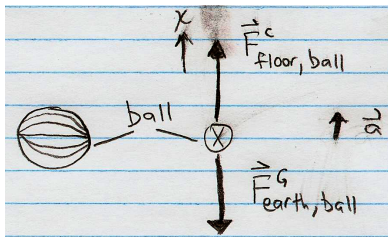 x
F⃗ᶜ floor, ball
ball
x
a⃗
F⃗ᴳ earth, ball